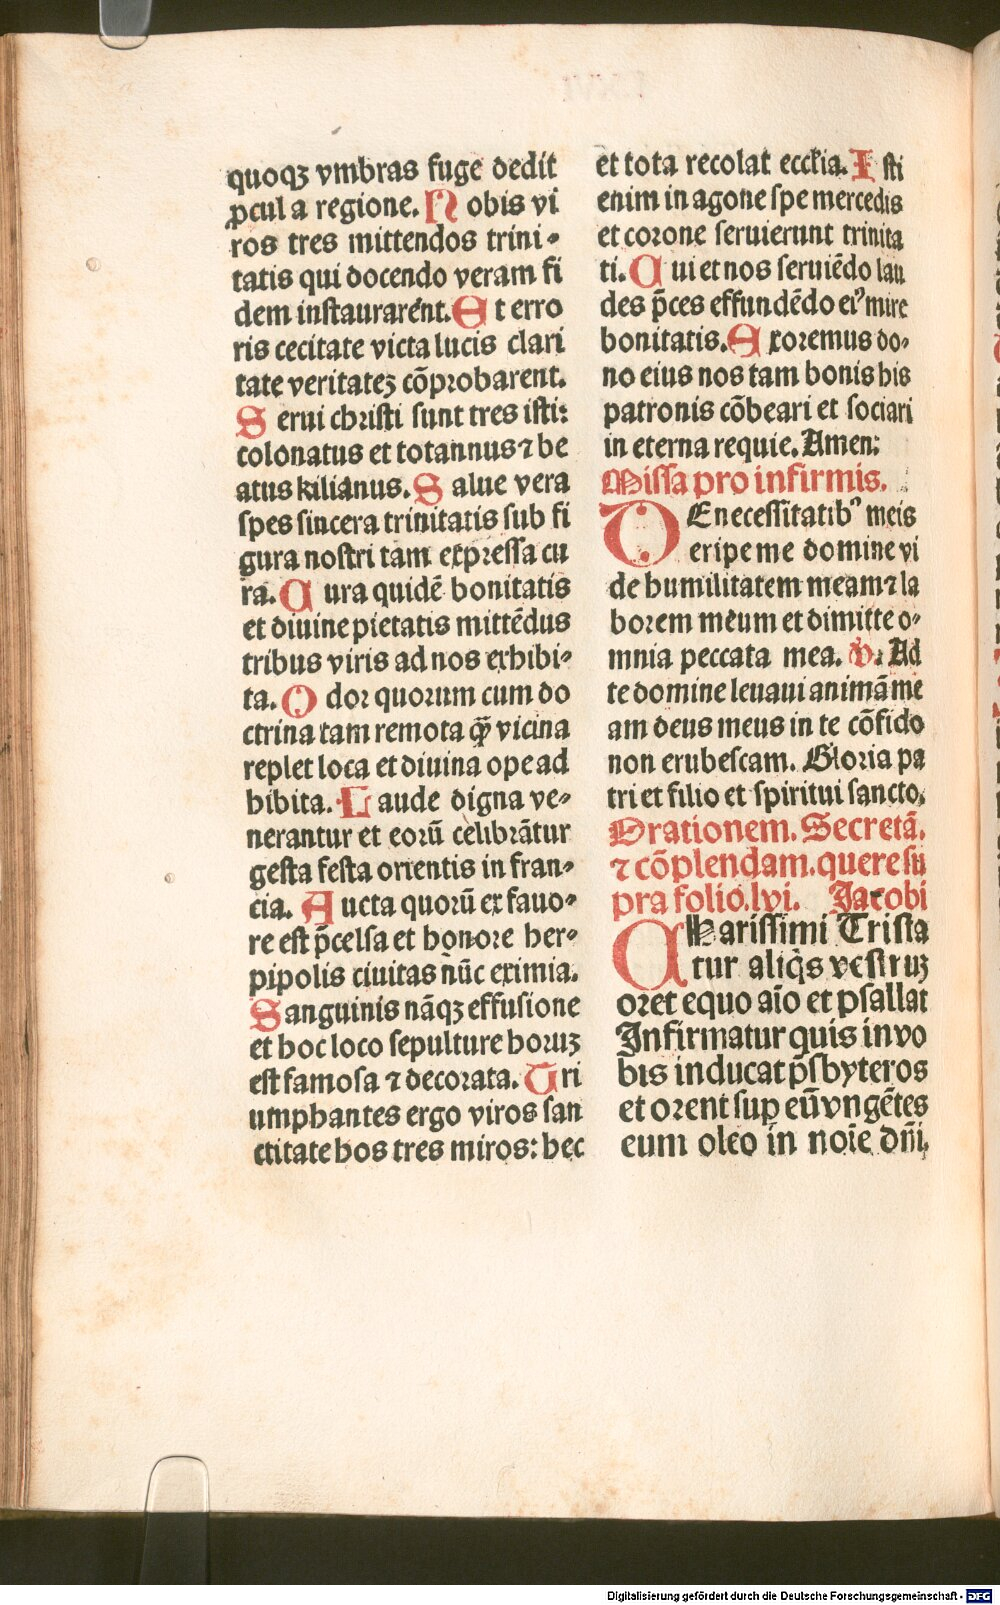 quoqꝫ vmbras fuge dedit
ꝓcul a regione. Nobis vi
ros tres mittendos trini-
tatis qui docendo veram fi
dem instaurarent. Et erro
ris cecitate victa lucis clari
tate veritateꝫ cōprobarent.
Serui christi sunt tres isti:
colonatus et totannus ⁊ be
atus kilianus. Salue vera
spes sincera trinitatis sub fi
gura nostri tam expressa cu
ra. Cura quidē bonitatis
et diuine pietatis mittēdus
tribus viris ad nos exhibi-
ta. Odor quorum cum do
ctrina tam remota qꝫ̄ vicina
replet loca et diuina ope ad
hibita. Laude digna ve-
nerantur et eorū celibrātur
gesta festa orientis in fran-
cia. Aucta quorū ex fauo-
re est p̄celsa et honore her-
pipolis ciuitas nūc eximia.
Sanguinis nāqꝫ effusione
et hoc loco sepulture horuꝫ
est famosa ⁊ decorata. Tri
umphantes ergo viros san
ctitate hos tres miros: hec
et tota recolat eccłia. Isti
enim in agone spe mercedis
et corone seruierunt trinita
ti. Cui et nos seruiēdo lau
des p̄ces effundēdo eiꝰ mire
bonitatis. Exoremus do-
no eius nos tam bonis his
patronis cōbeari et sociari
in eterna requie. Amen:
Missa pro infirmis.
DE necessitatibꝰ meis
eripe me domine vi
de humilitatem meam ⁊ la
borem meum et dimitte o-
mnia peccata mea. v. Ad
te domine leuaui animā me
am deus meus in te cōfido
non erubescam. Gloria pa
tri et filio et spiritui sancto.
Orationem. Secretā.
⁊ cōplendam. quere su
pra folio. lvi. Jacobi
CHarissimi Trista
tur aliq̇s vestruꝫ
oret equo aīo et psallat
Infirmatur quis in vo
bis inducat p̄sbyteros
et orent suꝑ eū vngētes
eum oleo in noīe dn̄i.
Digitalisierung gefördert durch die Deutsche Forschungsgemeinschaft - DFG